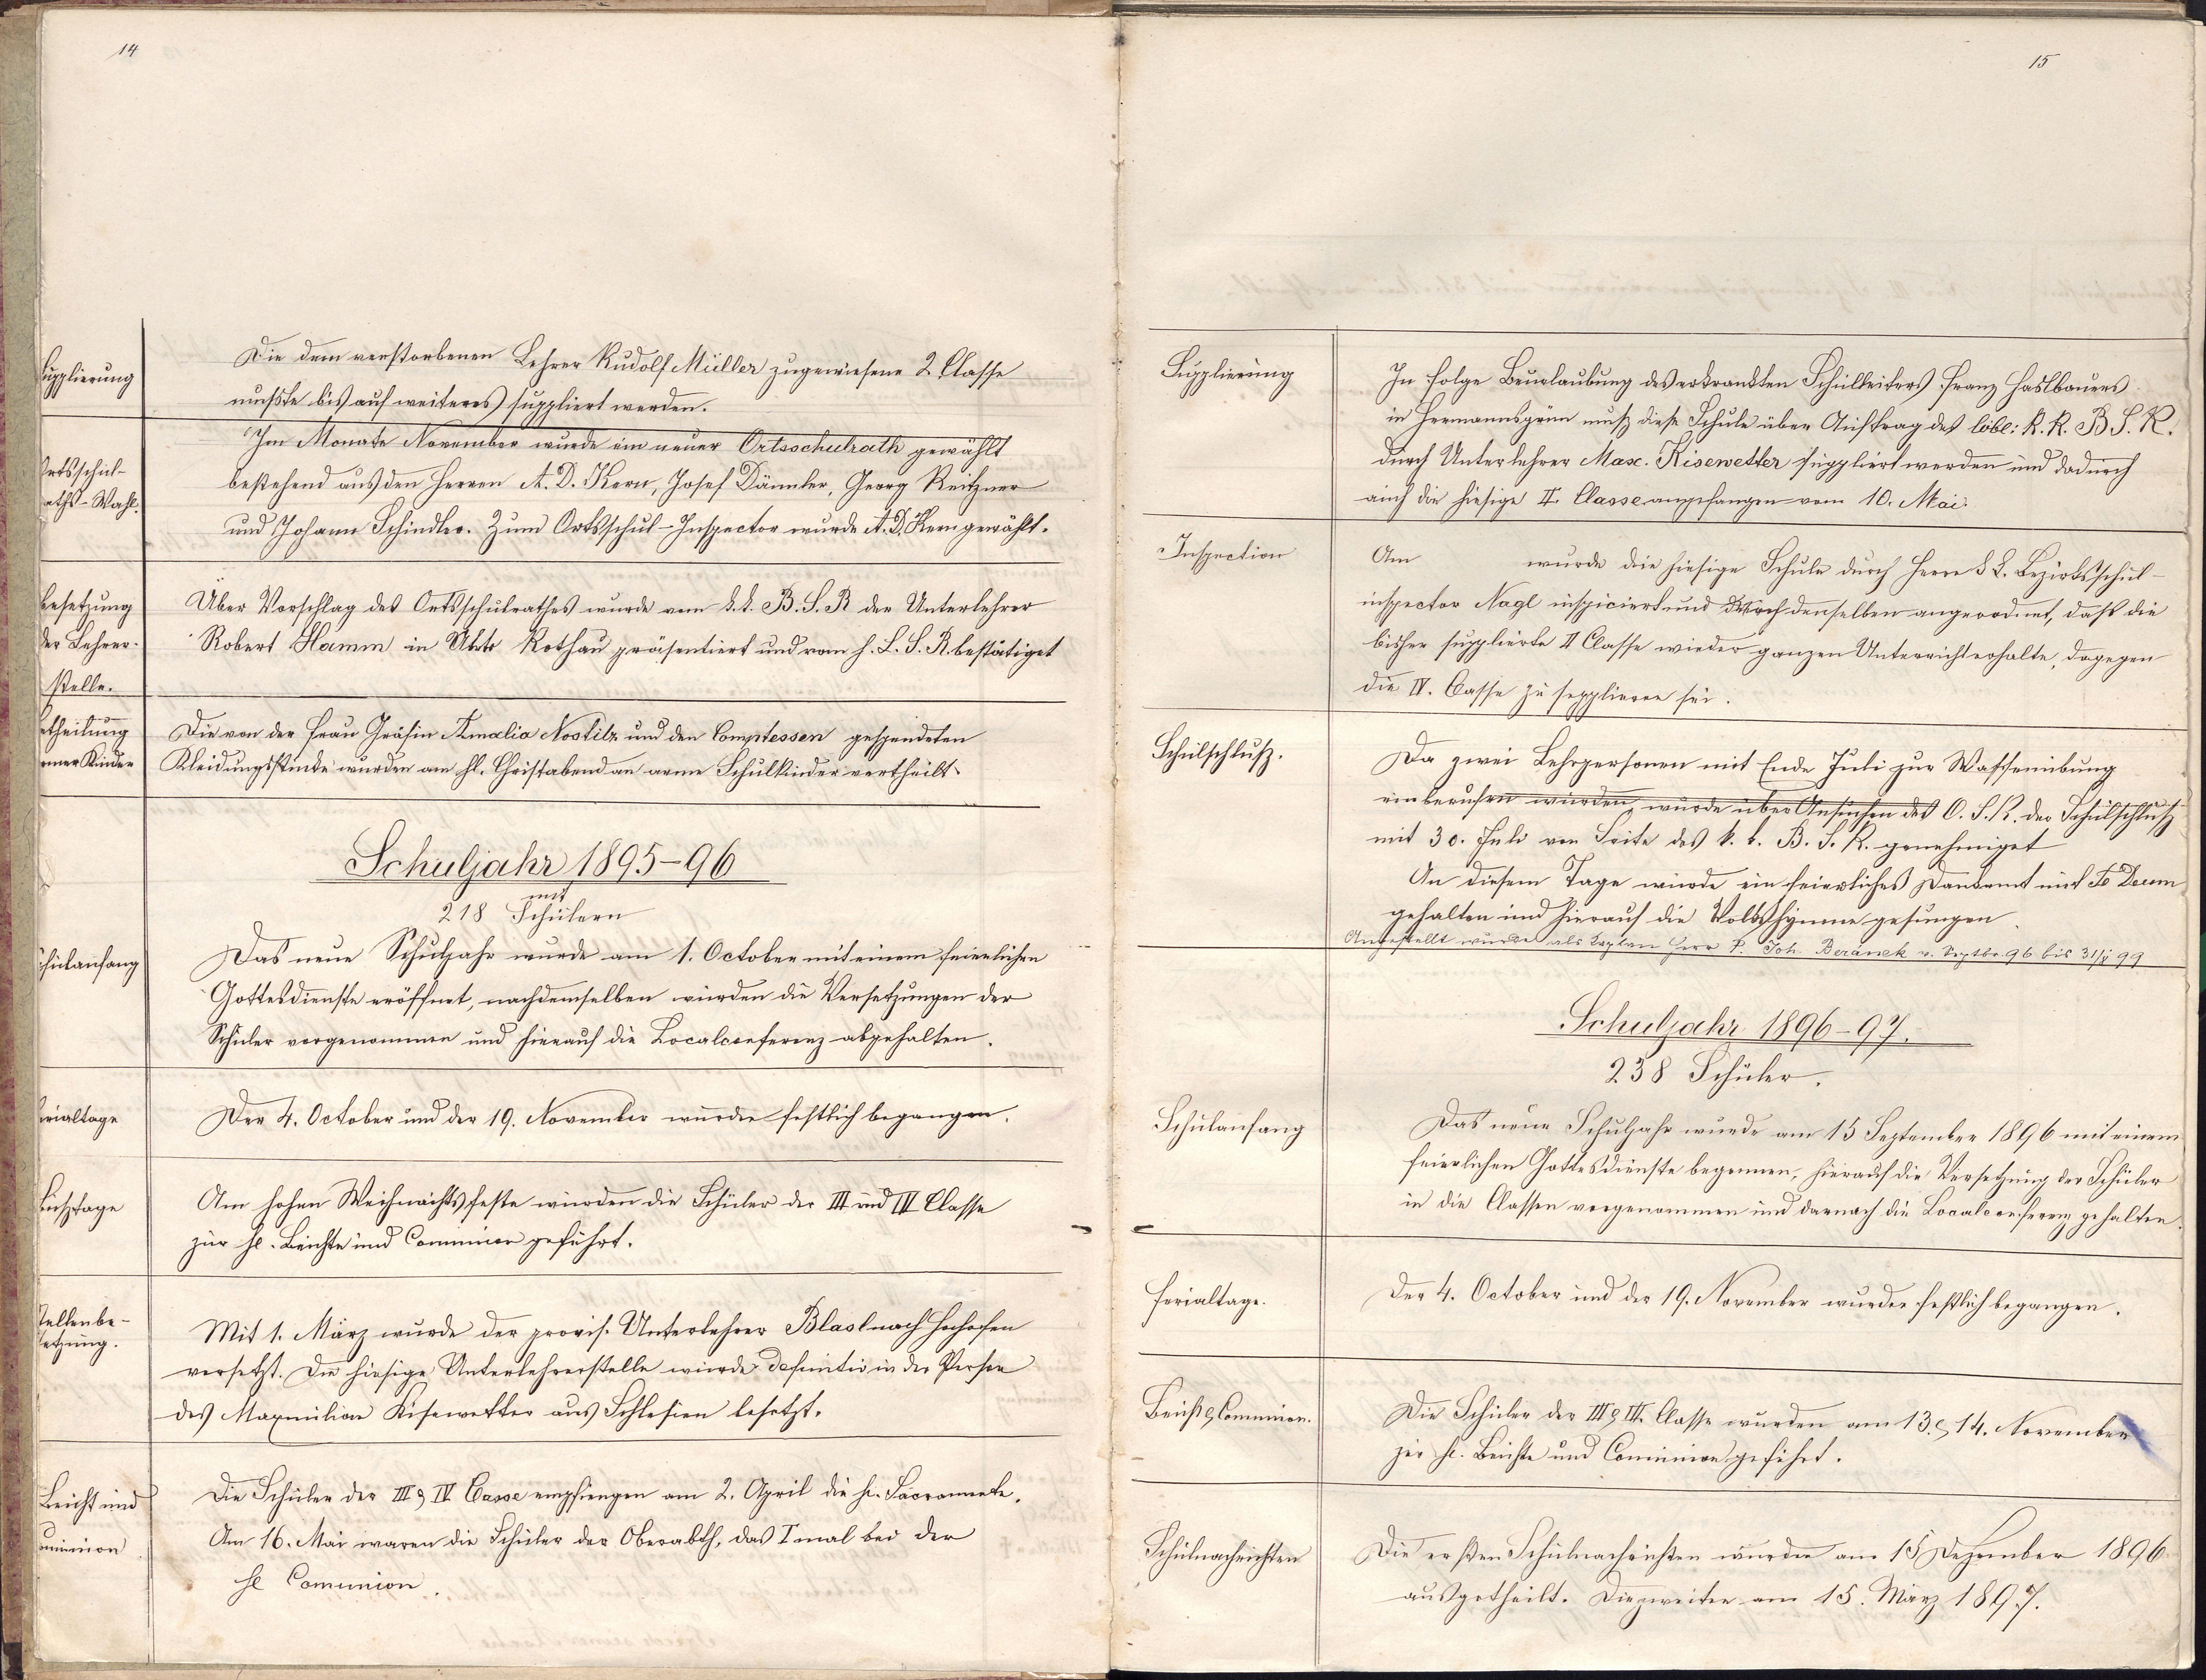 14
Supplierung
Die dem verstorbenen Lehrer Rudolf Müller zugewiesene 2 Classe
mußte bis auf weiteres suppliert werden.
Ortsschul-
raths-Wahl.
Im Monate November wurde ein neuer Ortsschulrath gewählt
bestehend aus den Herren A. D. Kern, Josef Dämler, Georg Reitzner
und Johann Schindler. Zum Ortsschul-Inspector wurde A. D. Kern gewählt.
Besetzung
der Lehrer-
stelle.
Über Vorschlag des Ortsschulrathes wurde vom k.k. B. S. R der Unterlehrer
Robert Hamm in Rothau präsentiert und vom h. L. S. R. bestätiget
etheilung
armer Kinder
Die von der Frau Gräfin Amalia Nostitz und den Comptessen gespendeten
Kleidungsstücke wurden am hl. Christabend an arme Schulkinder vertheilt.
Schuljahr 1895-96
mit
218 Schülern
Schulanfang
Das neue Schuljahr wurde am 1. October mit einem feierlichen
Gottesdienste eröffnet, nachdemselben wurden die Versetzungen der
Schüler vorgenommen und hierauf die Localconferenz abgehalten.
Ferialtage
Der 4. October und der 19. November wurden festlich begangen.
Bußtage
Am hohen Weihnachtsfeste wurden die Schüler der III und IV Classe
zur hl. Beichte und Communion geführt.
Stellenbe-
setzung.
Mit 1. März wurde der provis. Unterlehrer Blasl nach Hochofen
versetzt. Die hiesige Unterlehrerstelle wurde definitiv in der Person
des Maxmilian Kisewetter aus Schlesien besetzt.
Beicht und
Comunion
Die Schüler der III & IV Casse empfiengen am 2. April die hl. Sacramente.
Am 16. Mai waren die Schüler der Oberabth. das I mal bei der
hl Comunion.
15
Supplierung
In Folge Beurlaubung des erkrankten Schulleiters Franz Haslbauers
in Hermannsgrün muß diese Schule über Auftrag des löbl: k. k. B. S. R.
durch Unterlehrer Max. Kisewetter suppliert werden und dadurch
auch die hiesige II. Classe angefangen vom 10. Mai.
Inspection
Am wurde die hiesige Schule durch Herrn k k. Bezirksschul-
inspector Nagl inspiciert und durch denselben angeordnet, daß die
bisher supplierte II Classe wieder ganzen Unterricht erhalte, dagegen
die IV. Casse zu supplieren sei.
Schulschluß.
Da zwei Lehrpersonen mit Ende Juli zur Waffenübung
einberufen wurden, wurde über Ansuchen des O. S. R. der Schulschluß
mit 30. Juli von Seite des k. k. B. S. R. genehmiget
An diesem Tage wurde ein feierliches Dankamt mit Te Deum
gehalten und hierauf die Volkshymne gesungen.
Angestellt wurde als Kaplan Herr P. Joh. Beránek v. Septbr. 96 bis 31/ 99
Schuljahr 1896-97.
238 Schüler.
Schulanfang
Das neue Schuljahr wurde am 15 September 1896 mit einem
feierlichen Gottesdienste begonnen, hierauf die Versetzung der Schüler
in die Classen vorgenommen und darnach die Localconferenz gehalten.
Ferialtage.
Der 4. October und der 19. November wurden festlich begangen.
Beicht & Communion.
Die Schüler der III & IV. Classe wurden am 13. & 14. November
zur hl. Beichte und Communion geführt.
Schulnachrichten
Die ersten Schulnachrichten wurden am 15 Dezember 1896
ausgetheilt. Die zweiten am 15. März 1897.